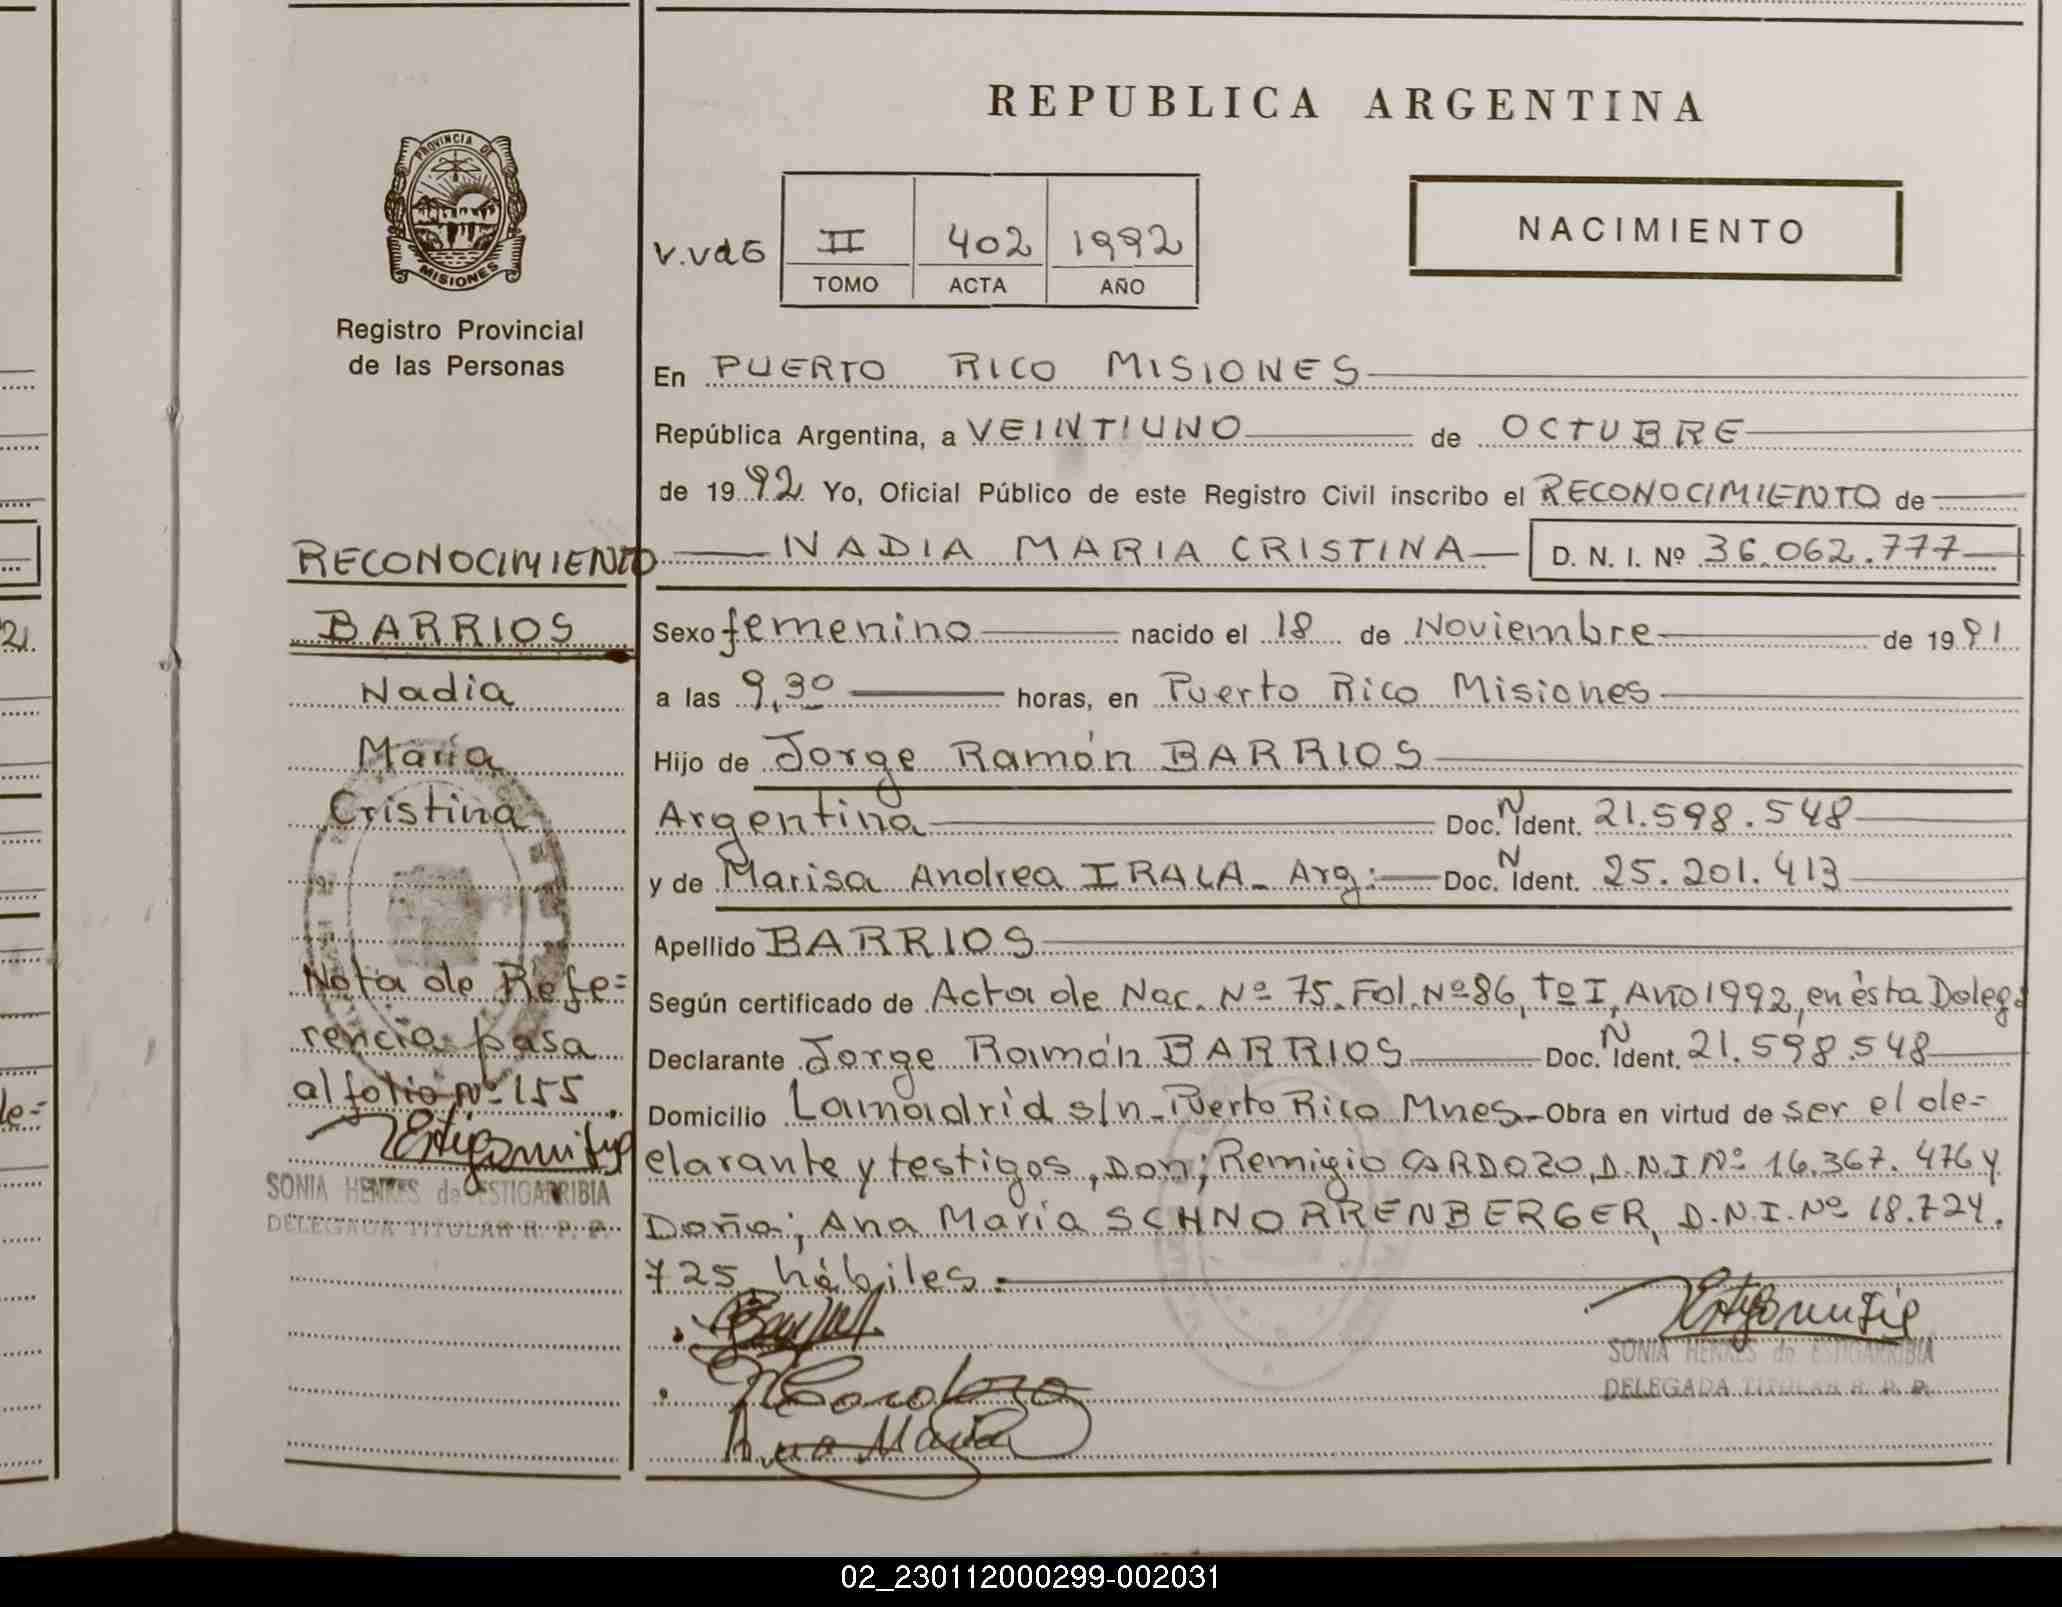 REPUBLICA ARGENTINA
PROVINCIA DE
MISIONES
Registro Provincial
de las Personas
V.Vd6
II 402 1992
TOMO ACTA AÑO
NACIMIENTO
En PUERTO RICO MISIONES
República Argentina, a VEINTIUNO de OCTUBRE
de 1992 Yo, Oficial Público de este Registro Civil inscribo el RECONOCIMIENTO de
NADIA MARIA CRISTINA D. N. I. Nº 36.062.777
Sexo femenino nacido el 18 de Noviembre de 1991
a las 9,30 horas, en Puerto Rico Misiones
Hijo de Jorge Ramón BARRIOS
Argentina Doc. N Ident. 21.598.548
y de Marisa Andrea IRALA- Arg: Doc. N Ident. 25.201.413
Apellido BARRIOS
Según certificado de Acta de Nac. Nº 75. Fol. Nº 86, Tº I, Año 1992, en ésta Deleg.
Declarante Jorge Ramón BARRIOS Doc. N Ident. 21.598.548
Domicilio Lamadrid s/n- Puerto Rico Mnes- Obra en virtud de ser el de=
clarante y testigos, Don; Remigio CARDOZO, D.N.I Nº 16.367.476 y
Doña; Ana María SCHNORRENBERGER, D.N.I. Nº 18.724.
725 hábiles:
Cardozo
Ana María
SONIA HENKES de ESTIGARRIBIA
DELEGADA TITULAR R. P. P.
RECONOCIMIENTO
BARRIOS
Nadia
María
Cristina
Nota de Refe=
rencia pasa
al folio Nº 155.
SONIA HENKES de ESTIGARRIBIA
DELEGADA TITULAR R. P. P.
02_230112000299-002031